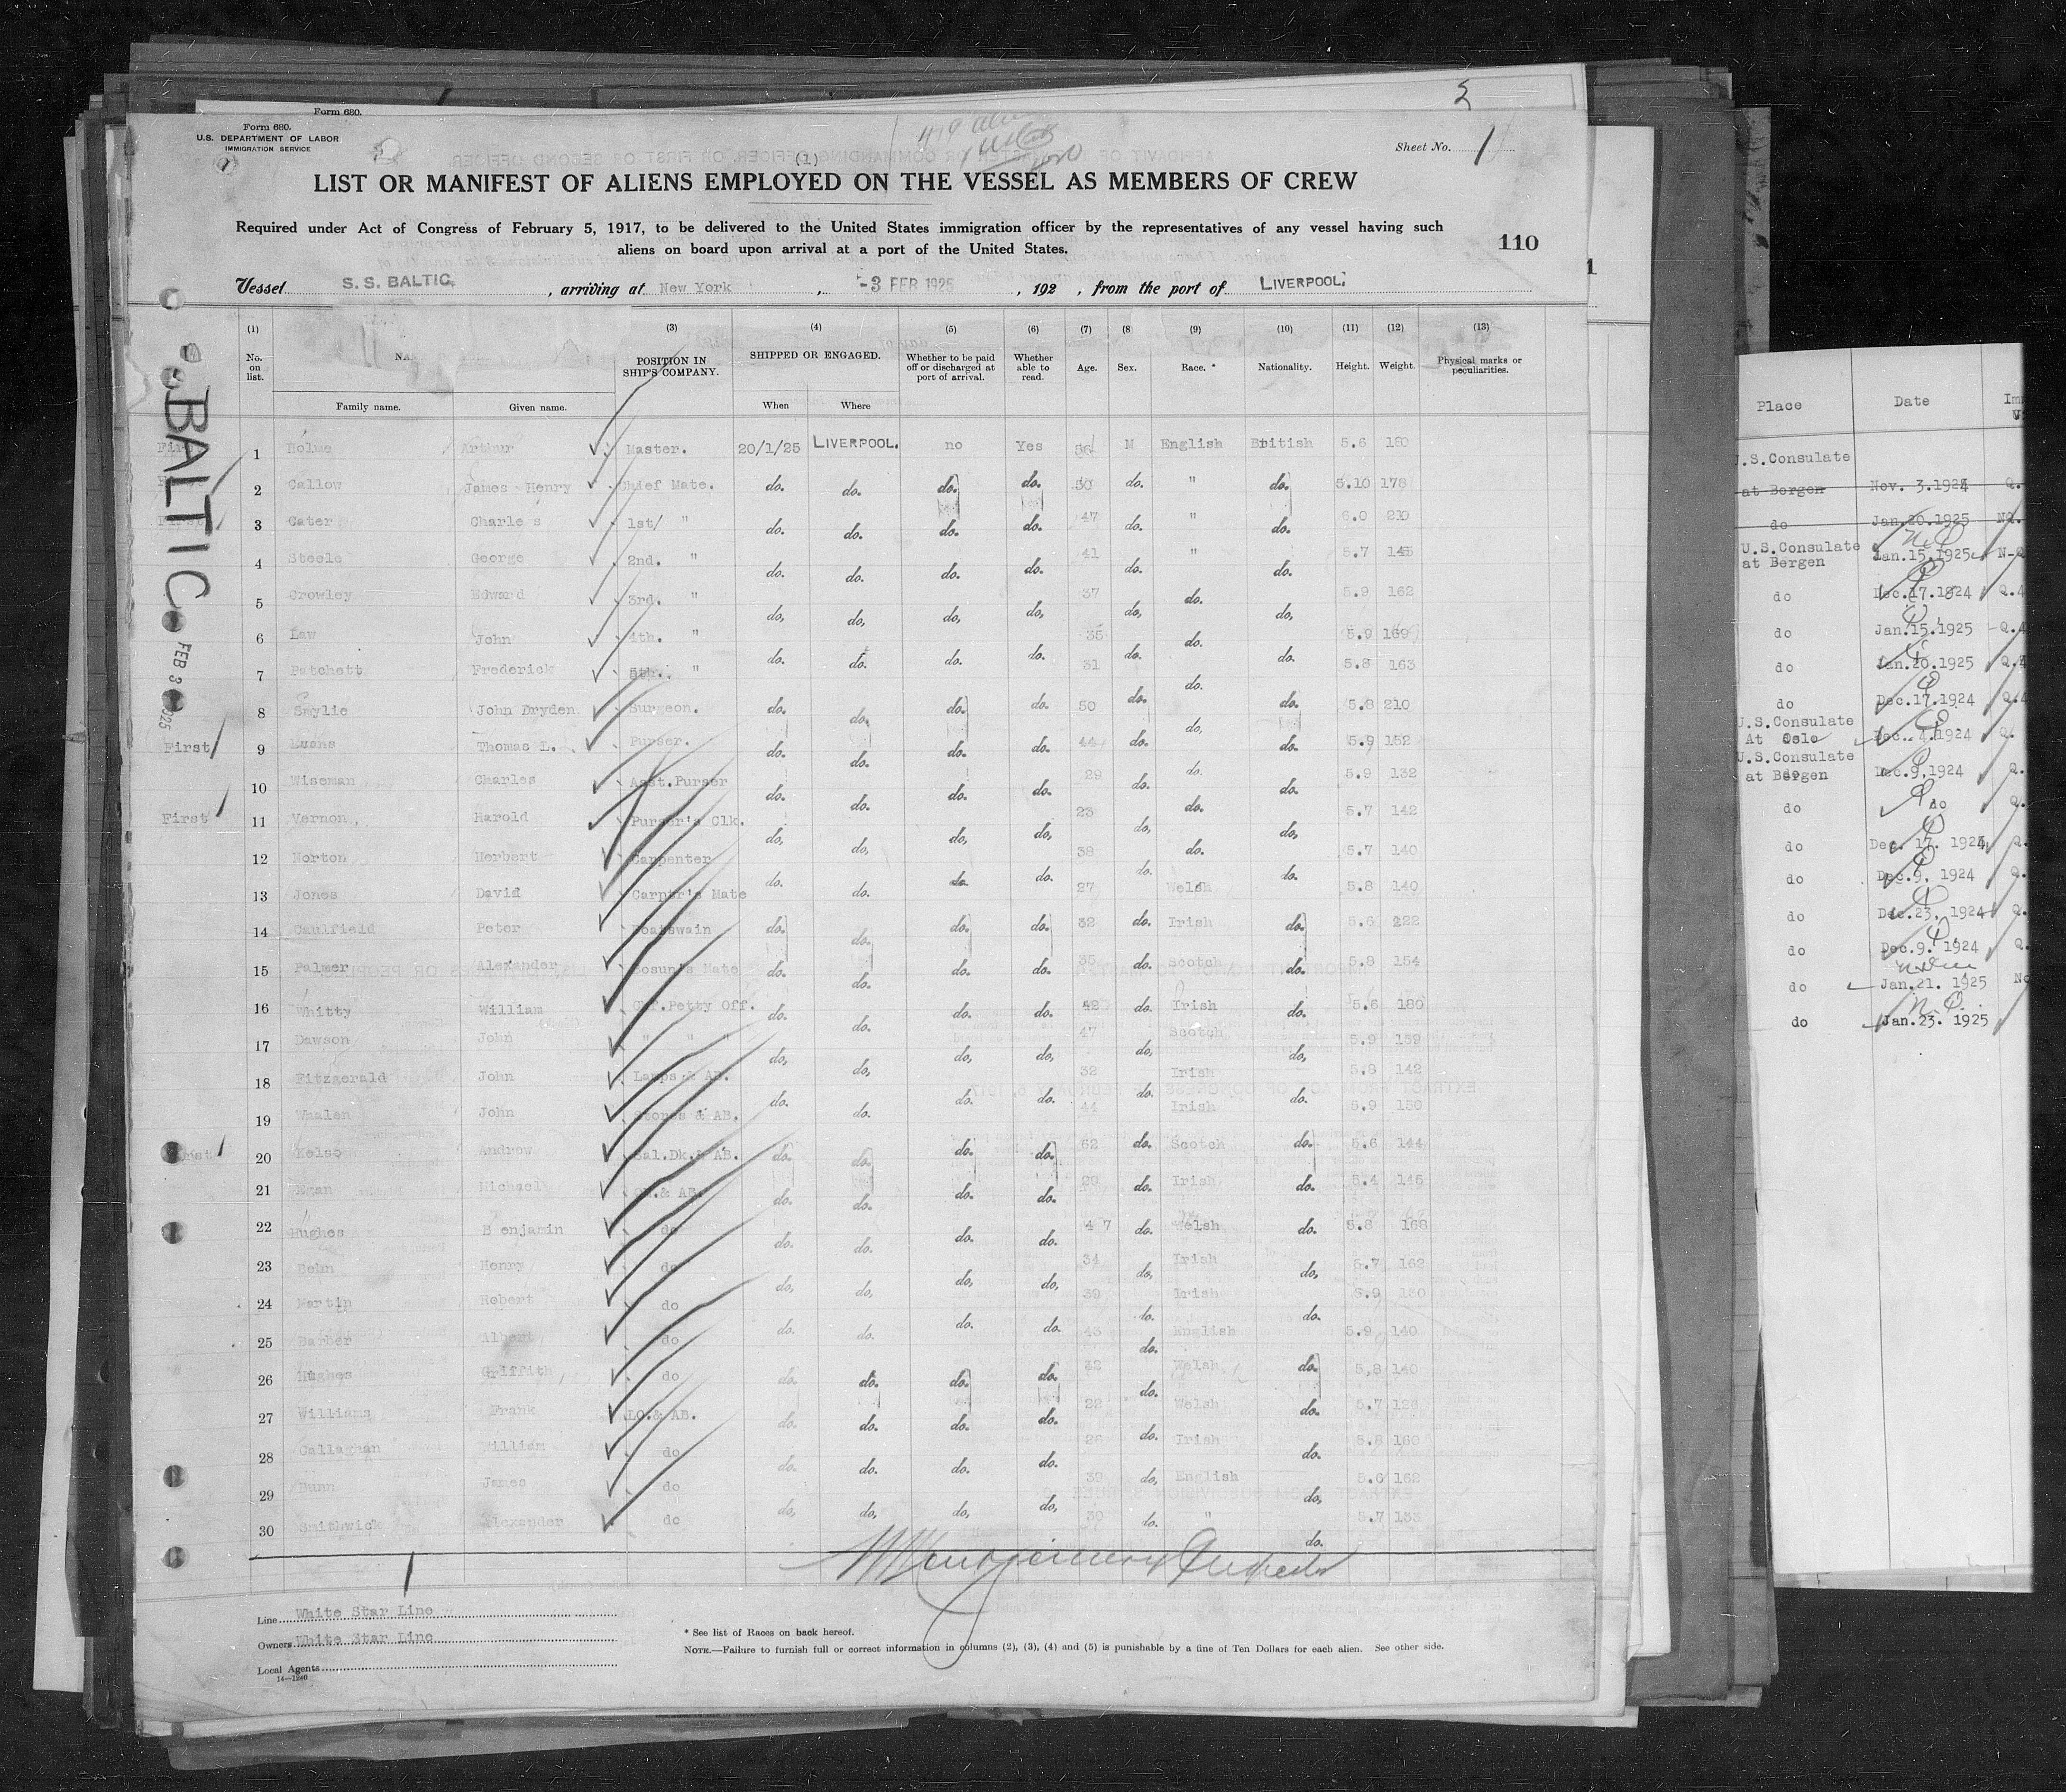 Form 680.
Form 680.
U.S. DEPARTMENT OF LABOR
IMMIGRATION SERVICE
Sheet No. 1
(1)
LIST OR MANIFEST OF ALIENS EMPLOYED ON THE VESSEL AS MEMBERS OF CREW
Required under Act of Congress of February 5, 1917, to be delivered to the United States immigration officer by the representatives of any vessel having such
aliens on board upon arrival at a port of the United States.
110
Vessel S. S. BALTIC, arriving at New York, -3 FEB 1925, 192 , from the port of LIVERPOOL.
(1) (3) (4) (5) (6) (7) (8 (9) (10) (11) (12) (13)
No. on list. Family name. Given name. POSITION IN SHIP'S COMPANY. SHIPPED OR ENGAGED. When Where Whether to be paid off or discharged at port of arrival. Whether able to read. Age. Sex. Race. * Nationality. Height. Weight. Physical marks or peculiarities.
1 Holme Arthur Master. 20/1/25 LIVERPOOL. no Yes 56 M English British 5.6 180
2 Callow James Henry Chief Mate. do. do. do. do. 50 do. " do. 5.10 178
3 Cater Charles 1st/ " do. do. do. do. 47 do. " do. 6.0 210
4 Steele George 2nd. " do. do. do. do. 41 do. " do. 5.7 145
5 Crowley Edward 3rd. " do, do, do, do, 37 do, do. do, 5.9 162
6 Law John 4th. " do. do. do. do. 35 do. do. do. 5.9 169
7 Patchett Frederick 5th. " 31 do. 5.8 163
8 Smylie John Dryden Surgeon. do. do. do. do. 50 do. do, do. 5.8 210
First 9 Thomas L. Purser. do. do. do. do. 44 do. do. do. 5.9 152
10 Wiseman Charles Asst.Purser do. do. do. do. 29 do. do. do. 5.9 132
First 11 Vernon Harold Purser's Clk. do, do, do, do, 23 do, do. do, 5.7 142
12 Norton Herbert Carpenter do. do. do. do. 38 do. do. do. 5.7 140
13 Jones David Carptr's Mate 27 Welsh 5.8 140
14 Caulfield Peter Boatswain do. do. do. do. 32 do. Irish do. 5.6 222
15 Palmer Alexander Bosun's Mate do. do. do. do. 35 do. Scotch do. 5.8 154
16 Whitty William Petty Off. do. do. do. do. 42 do. Irish do. 5.6 180
17 Dawson John " " " do, do, do, do, 47 do, Scotch do, 5.9 159
18 Fitzgerald John Lamps & AB. do. do. do. do. 32 do. Irish do. 5.8 142
19 Whalen John Stores & AB. 44 Irish 5.9 150
20 Kelso Andrew Sal.Dk.& AB. do. do. do. do. 62 do. Scotch do. 5.6 144
21 Egan Michael & AB. do. do. do. do. 29 do. Irish do. 5.4 146
22 Hughes Benjamin do do. do. do. do. 47 do. Welsh do. 5.8 168
23 Henry do do, do, do, do, 34 do, Irish do, 5.7 162
24 Martin Robert do do. do. do. do. 39 do. Irish do. 5.9 150
25 Barber Albert do 43 do. English 5.9 140
26 Hughes Griffith do do. do. do. do. 32 do. Welsh do. 5.8 140
27 Williams Frank LO.& AB. do. do. do. do. 22 Welsh do. 5.7
28 Callaghan William do do. do. do. do. 26 do. Irish do. 5.8 160
29 James do do, do, do, do, 39 do, English do, 5.6 162
30 Smithwick Alexander do 30 do. " do. 5.7
BALTIC
FEB 3 1925
Line White Star Line
Owners White Star Line
Local Agents
14—1240
* See list of Races on back hereof.
NOTE.—Failure to furnish full or correct information in columns (2), (3), (4) and (5) is punishable by a fine of Ten Dollars for each alien. See other side.
Place Date
U.S.Consulate
at Bergen Nov. 3.1924
do Jan.20.1925
U.S.Consulate
at Bergen Jan.15,1925
do Dec.17.1924
do Jan.15,1925
do Jan.20.1925
do Dec.17.1924
U.S.Consulate
At Oslo Dec. 4,1924
U.S.Consulate
at Bergen Dec.9,1924
do do
do Dec. 17. 1924
do Dec.9, 1924
do Dec.23, 1924
do Dec.9. 1924
do Jan.21. 1925
do Jan.23. 1925